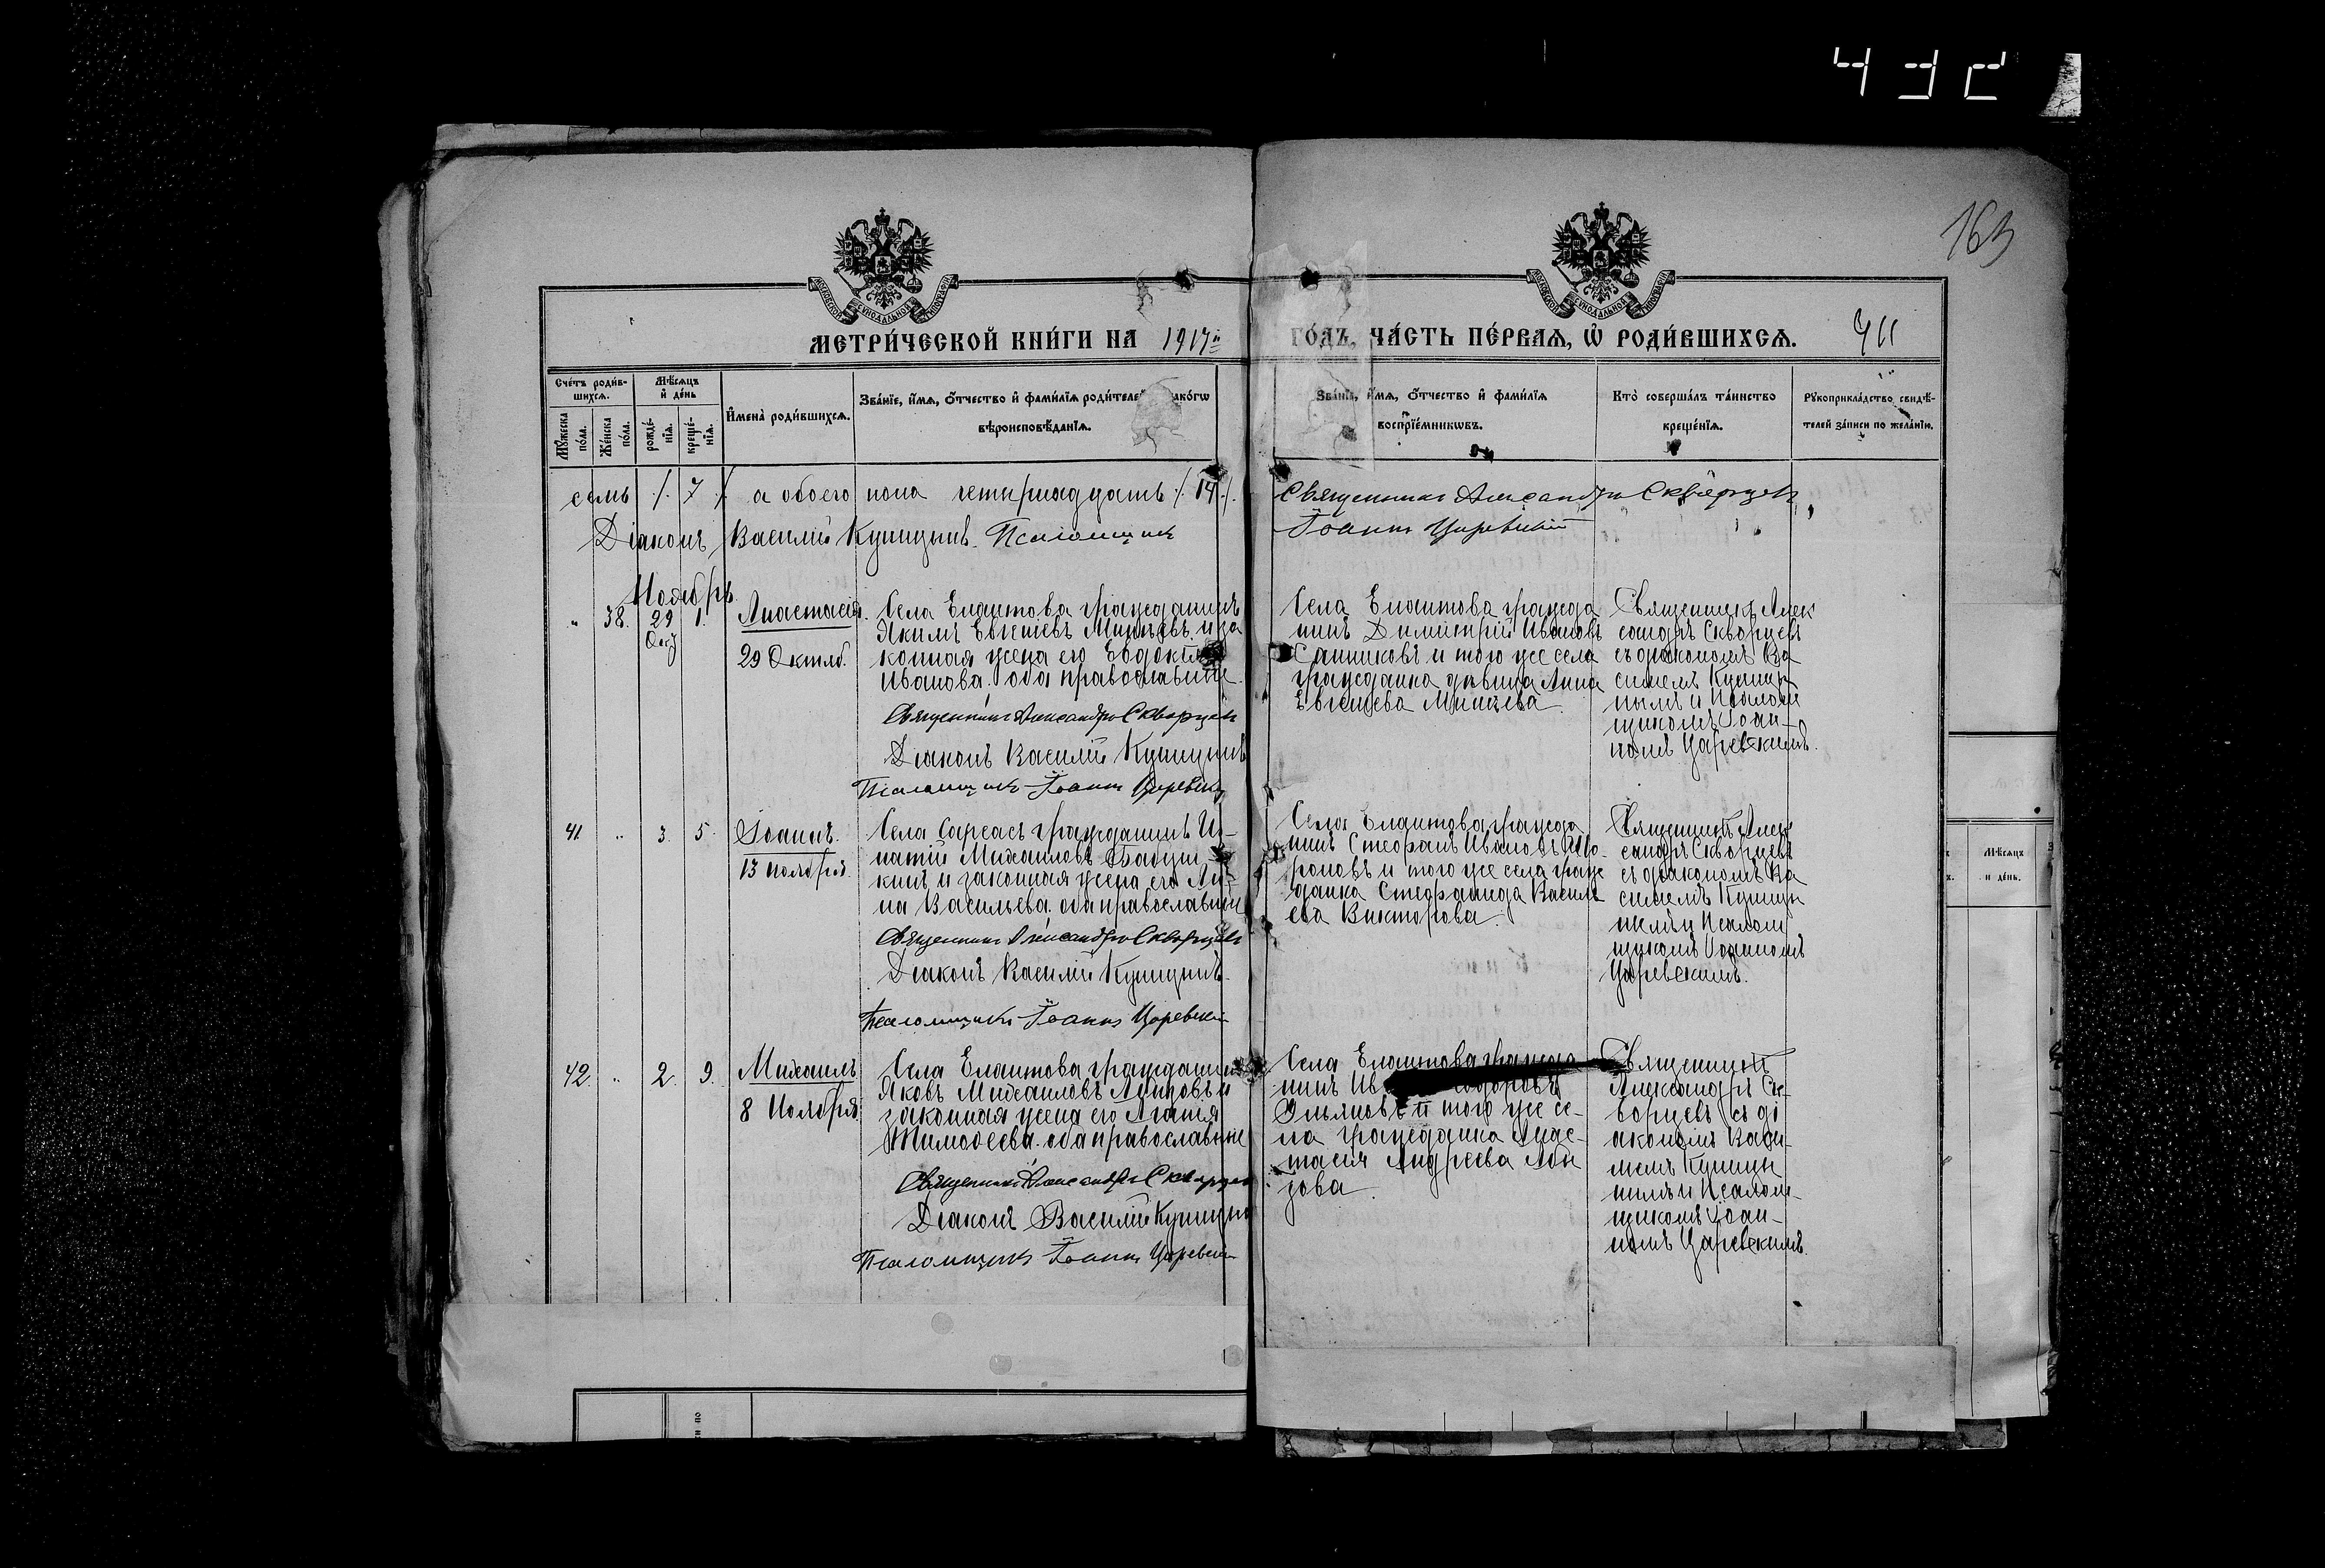 432
163
МЕТРИ́ЧЕСКОЙ КНИ́ГИ НА 1917й ГО́ДЪ, ЧА́СТЬ ПЕ́РВАѦ, Ѡ҆ РОДИ́ВШИХСѦ.
Сче́тъ роди́в-
шихсѧ.
Мѣ́сѧцъ
и҆ де́нь
Мꙋ́жеска по́ла.
Же́нска по́ла.
рожде́-
нїѧ.
креще́-
нїѧ.
И҆мена̀ роди́вшихсѧ.
Зва́нїе, и҆́мѧ, ѻ҆́тчество и҆ фами́лїѧ роди́телей
вѣроисповѣ́данїѧ.
Зва́нїе, и҆́мѧ, ѻ҆́тчество и҆ фами́лїѧ
воспрїе́мникѡвъ.
Кто̀ соверша́лъ та́инство
креще́нїѧ.
Рꙋкоприкла́дство свидѣ́-
телей за́писи по жела́нїю.
семь ./. 7 ./. а обоего пола четырнадцать ./. 14 ./.
Священникъ Александръ Скворцевъ,
Діаконъ Василій Купцынъ. Псаломщикъ
Іоаннъ Царевскій
Ноябрь.
„ 38. 29 Окт 1. Анастасія.
29 Октяб.
Села Елаштова гражданинъ
Якимъ Евгеніевъ и за
конная жена его Евдокія
Иванова. оба православные.
Священникъ Александръ Скворцевъ
Діаконъ Василій Купцынъ
Псаломщикъ Іоаннъ Царевскій
Села Елаштова гражда
нинъ Димитрій Ивановъ
Санниковъ и того же села
гражданка дѣвица Анна
Евгеніева
Священникъ Алек
сандръ Скворцевъ
съ діакономъ Ва
силіемъ Купцы
нымъ и Псалом
щикомъ Іоан-
номъ Царевскимъ.
41 „ 3. 5. Іоаннъ.
13 ноября.
Села Сарсасъ гражданинъ Иг-
натій Михаиловъ Бабуш-
кинъ и законная жена его Ан-
на Васильева. оба православные
Священникъ Александръ Скворцевъ
Діаконъ Василій Купцынъ.
Псаломщикъ Іоаннъ Царевскій
Села Елаштова гражда
нинъ Стефанъ Ивановъ
и того же села граж
данка Стефанида Василь
ева Викторова.
Священникъ Алек
сандръ Скворцевъ
съ діакономъ Ва
силіемъ Купцы
нымъ и Псалом
щикомъ Іоанномъ
Царевскимъ.
42. „ 2. 9. Михаилъ
8 Ноября.
Села Елаштова гражданинъ
Яковъ Михаиловъ и
законная жена его Агафія
Тимоѳеева. оба православные
Священникъ Александръ Скворцевъ
Діаконъ Василій Купцынъ
Псаломщикъ Іоаннъ Царевскій
Села Елаштова гражда
нинъ
и того же се-
ла гражданка Анас-
тасія Андреева
Священникъ
Александръ Ск-
ворцевъ съ ді
акономъ Васи-
ліемъ Купцы
нымъ и Псалом-
щикомъ Іоан-
номъ Царевскимъ.
Мѣ́сѧцъ
и҆ де́нь.